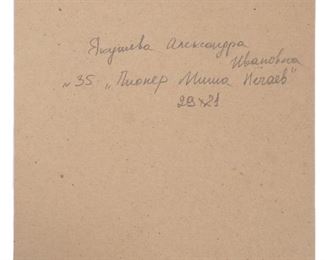 Якушева Александра
Ивановна
№ 35 „Пионер Миша Нечаев"
29x21